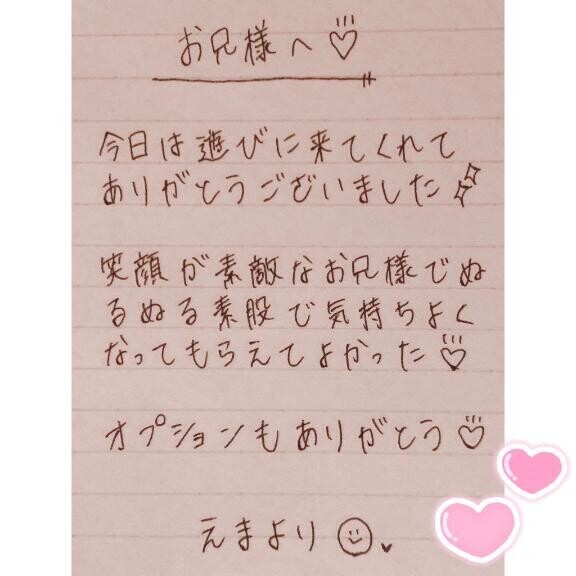 お兄様へ♡
今日は遊びに来てくれて
ありがとうございました
笑顔が素敵なお兄様でぬ
るぬる素股で気持ちよく
なってもらえてよかった♡
オプションもありがとう♡
えまより